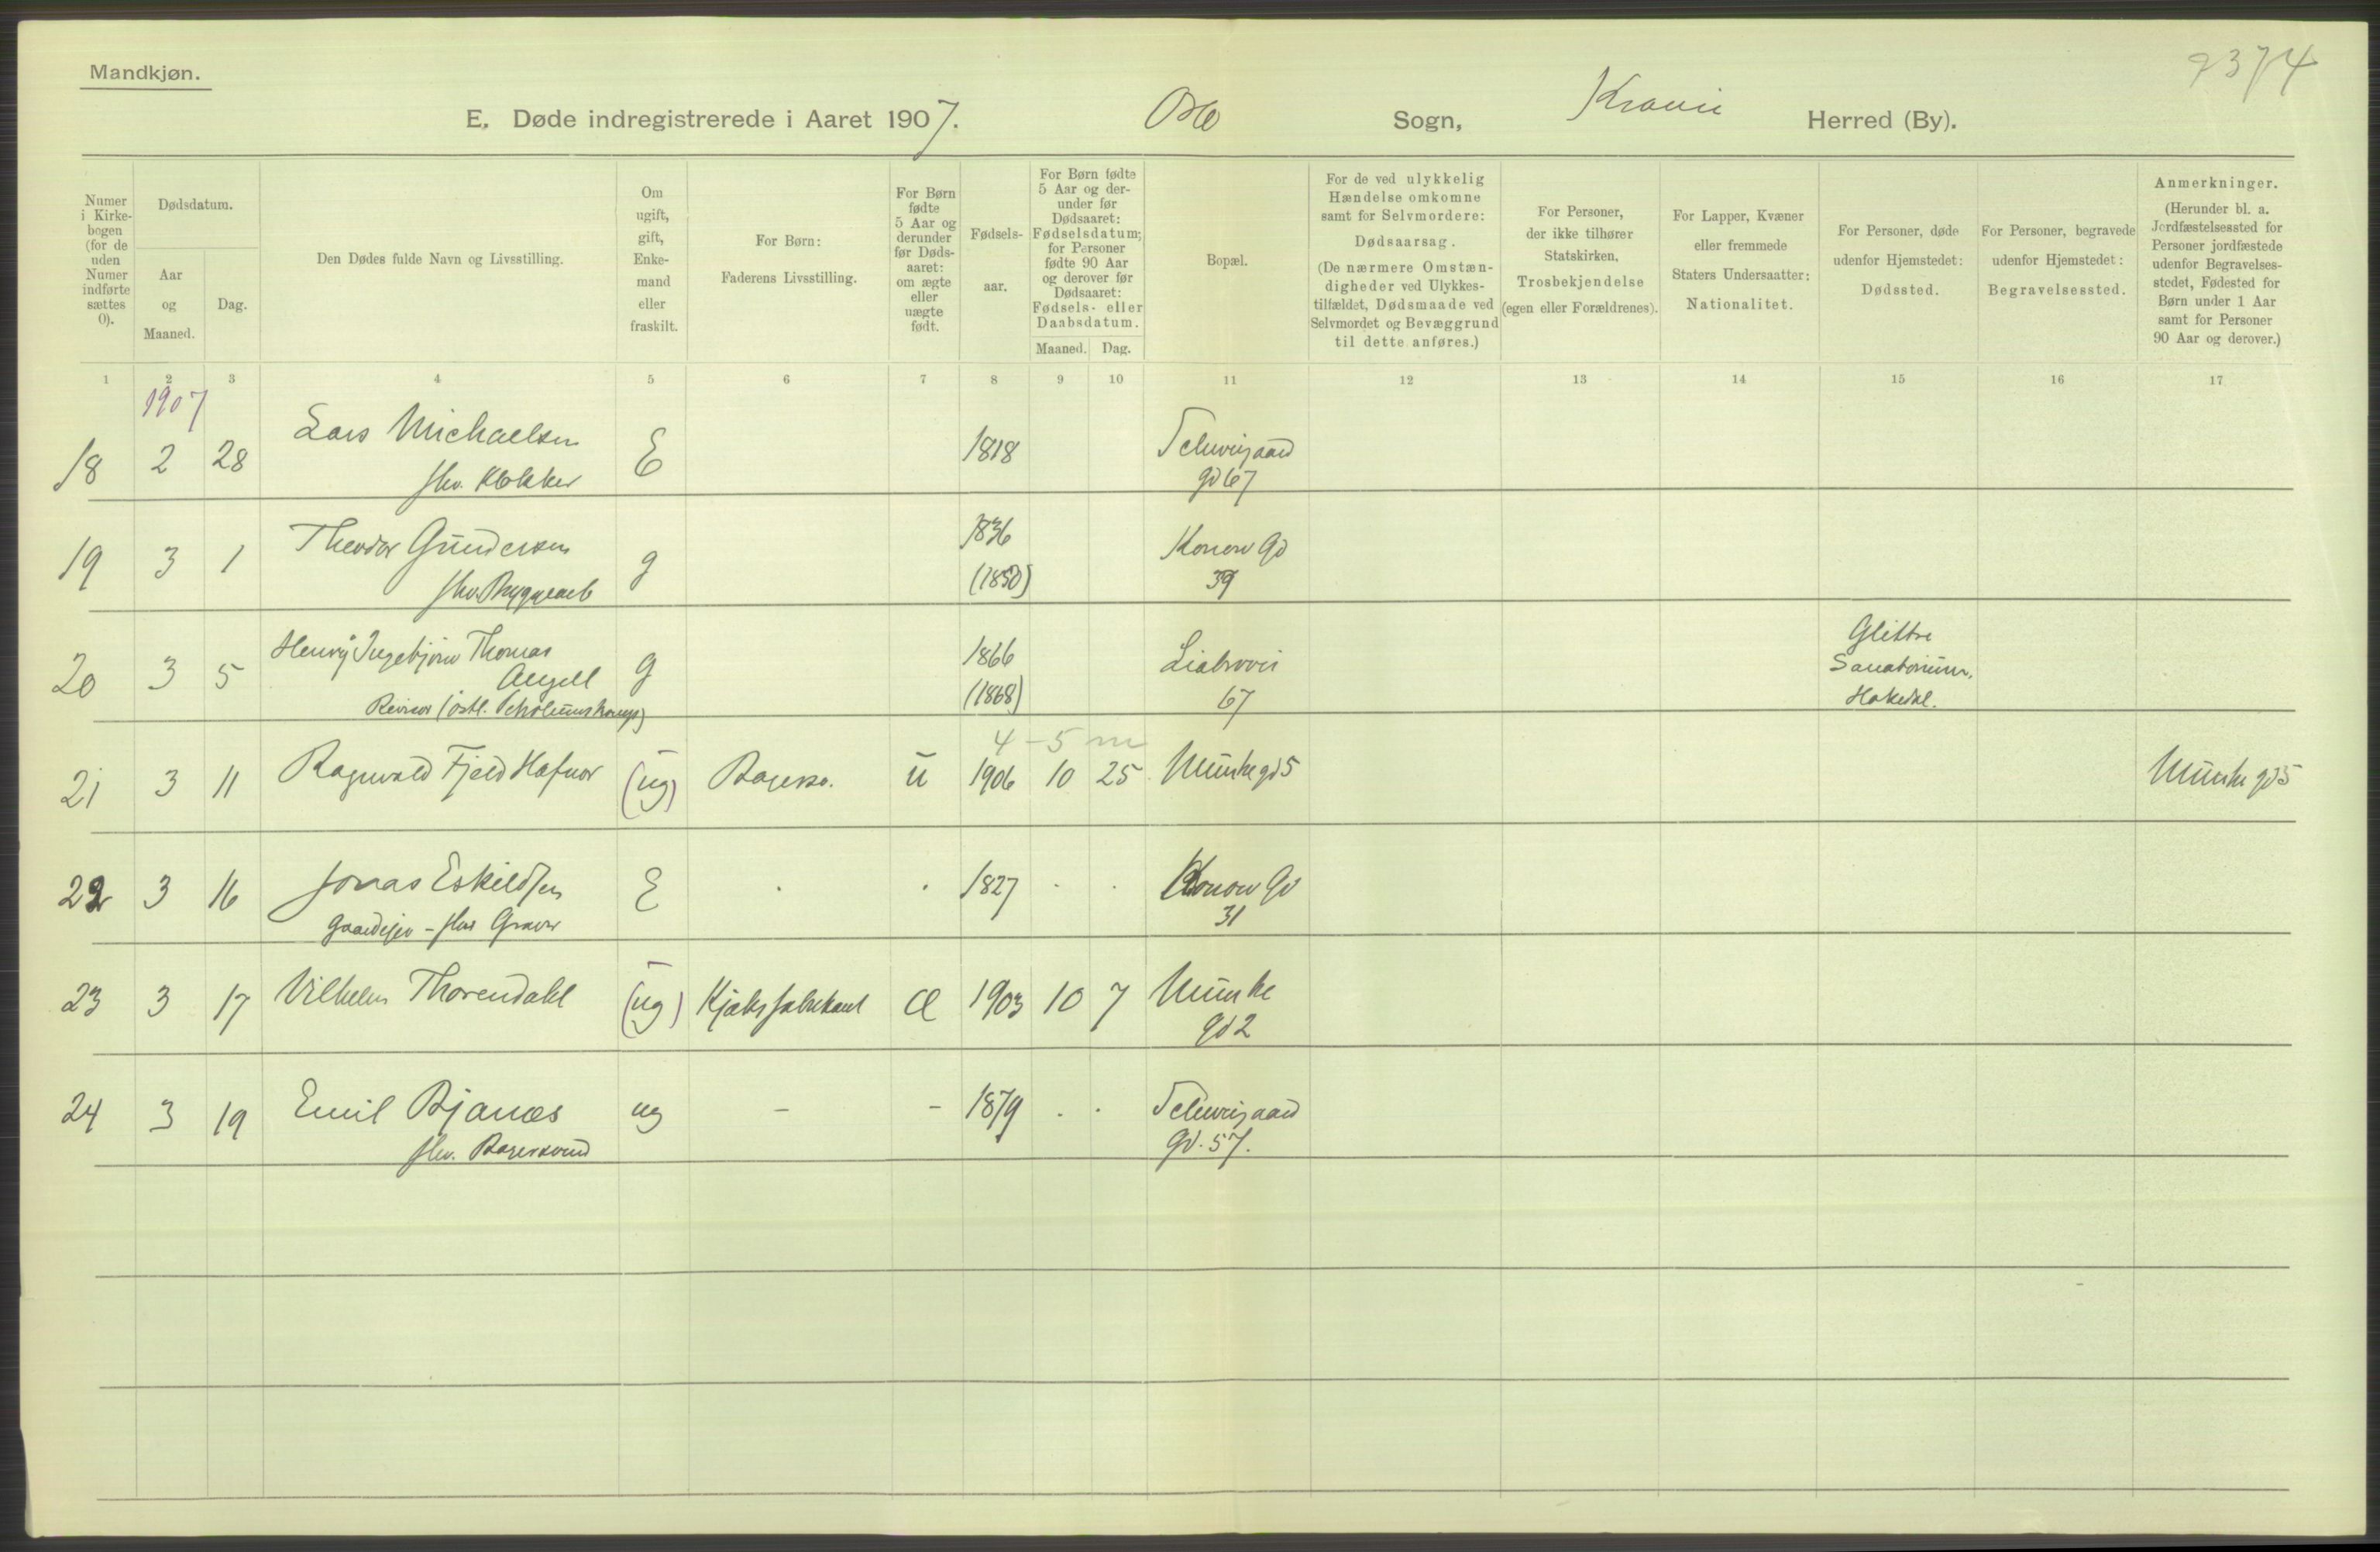 Mandkjøn.
2374
E. Døde indregistrerede i Aaret 1907. Oslo Sogn, Krania Herred (By).
Numer i Kirkebogen (for de uden Numer indførte sættes 0).
Dødsdatum.
Aar og Maaned.
Dag.
Den Dødes fulde Navn og Livsstilling.
Om ugift, gift, Enkemand eller fraskilt.
For Børn:
Faderens Livsstilling.
For Børn fødte 5 Aar og derunder før Dødsaaret: om ægte eller uægte født.
Fødselsaar.
For Børn fødte 5 Aar og derunder før Dødsaaret: Fødselsdatum; for Personer fødte 90 Aar og derover før Dødsaaret: Fødsels- eller Daabsdatum.
Maaned. Dag.
Bopæl.
For de ved ulykkelig Hændelse omkomne samt for Selvmordere:
Dødsaarsag.
(De nærmere Omstændigheder ved Ulykkestilfældet, Dødsmaade ved Selvmordet og Bevæggrund til dette anføres.)
For Personer, der ikke tilhører Statskirken,
Trosbekjendelse
(egen eller Forældrenes).
For Lapper, Kvæner eller fremmede Staters Undersaatter:
Nationalitet.
For Personer, døde udenfor Hjemstedet:
Dødssted.
For Personer, begravede udenfor Hjemstedet:
Begravelsessted.
Anmerkninger.
(Herunder bl. a. Jordfæstelsessted for Personer jordfæstede udenfor Begravelsesstedet, Fødested for Børn under 1 Aar samt for Personer 90 Aar og derover.)
1 2 3 4 5 6 7 8 9 10 11 12 13 14 15 16 17
1907
18 2 28 Lars Michaelsen E 1818 Schweigaard
fhv. Klokker gd 67
19 3 1 Theodor Gundersen g 1836 Konow Gd
fhv. Bryggearb (1850) 39
20 3 5 Henry Ingebjørn Thomas g 1866 Liabrovei Glittre
Angell Sanatorium,
Revisor (1868) 67 Hakedal.
4-5 m
21 3 11 Ragnvald Fjeld Hafnor (ug) Bagersv. u 1906 10 25 Munkegd 5 Munkegd 5
22 3 16 Jonas Eskildsen E 1827 Konow Gd
Gaardejer - fhv Graver 31
23 3 17 Vilhelm Thorendahl (ug) Kjæksfabrikant Æ 1903 10 7 Munke
gd 2
24 3 19 Emil Bjanæs ug - - 1879 Schweigaard
fhv. Bagersvend Gd. 57.